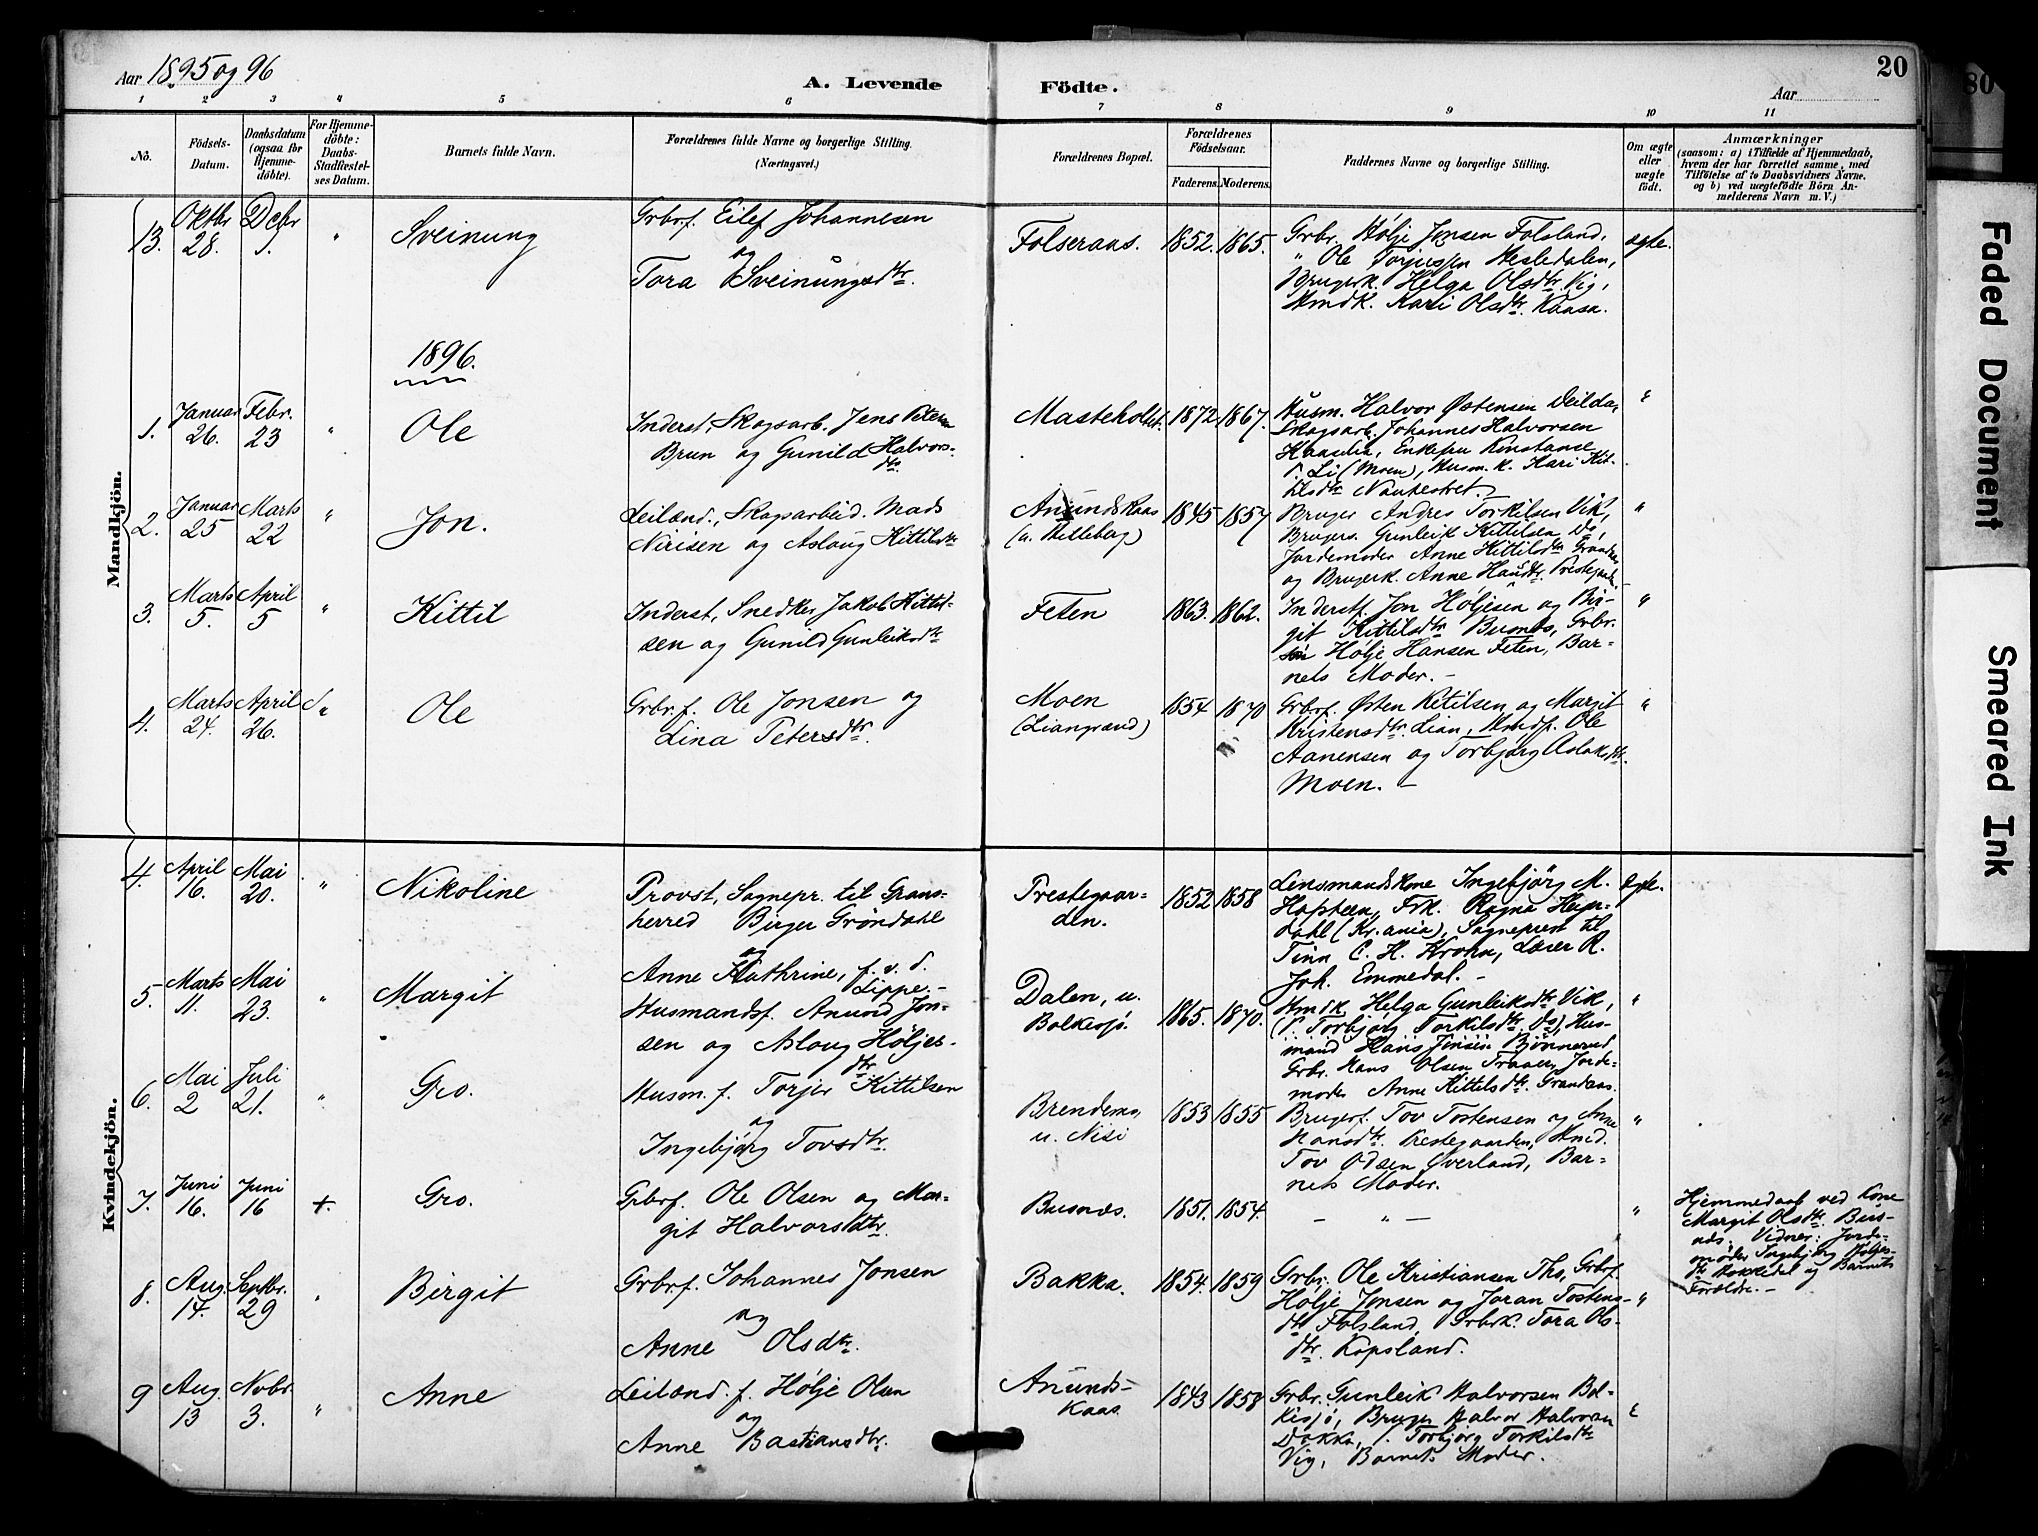 Aar 1895 og 96
A. Levende Födte.
Aar
20
1 2 3 4 5 6 7 8 9 10 11
No.
Födsels-Datum.
Daabsdatum (ogsaa for Hjemmedöbte).
For Hjemmedöbte: Daabs-Stadfæstelses Datum.
Barnets fulde Navn.
Forældrenes fulde Navne og borgerlige Stilling.
(Næringsvei.)
Forældrenes Bopæl.
Forældrenes Födselsaar.
Faderens. Moderens.
Faddernes Navne og borgerlige Stilling.
Om ægte eller uægte födt.
Anmærkninger
(saasom: a) i Tilfælde af Hjemmedaab, hvem der har forrettet samme, med Tilföielse af to Daabsvidners Navne. og b) ved uægtefödte Börn Anmelderens Navn m. V.)
Mandkjön.
13. Oktbr 28. Decbr 1. " Sveinung
Grbrf. Eilef Johannesen
og
Tora Sveinungsdtr.
Folseraas. 1852. 1865.
Grbr. Hølje Jonsen Folsland,
" Ole Torjussen Hesledalen,
Brugerk. Helga Olsdtr. Vig,
Hmdk. Kari Olsdtr. Kaasa.
ægte.
1896.
1. Januar 26. Febr. 23 " Ole
Inderst, Skogsarb. Jens Petersen
Brun og Gunild Halvors-
dtr
Masteholtet. 1872 1867.
Husm. Halvor Østensen Deilda,
Skogsarb. Johannes Halvorsen
Haaslia, Enkefru Konstanse
P. Li (Moen), Husm. k. Kari Kit-
tilsdtr
"
2. Januar 25 Marts 22 " Jon.
Leilænd., Skogsarbeid. Mads
Nirisen og Aslaug Kittilsdtr
Anundskaas
(u. Helleberg)
1845 1857
Bruger Andres Torkilsen Vik,
Brugers. Gunleik Kittilsen Do,
Jordemoder Anne Kittilsdtr
og Brugerk. Anne Hansdtr.
"
3. Marts 5. April 5 " Kittil
Inderst, Snedker Jakob Kittil-
sen og Gunild Gunleiksdtr
Feten 1863. 1862.
Inderstf. Jon Høljesen og Bir-
git Kittilsdtr Busnes, Grbr.
Hølje Hansen Feten, Bar-
nets Moder. –
"
4. Marts 24. April 26. " Ole
Grbr. f. Ole Jonsen og
Lina Petersdtr.
Moen
(Liangrænd)
1854 1870
Grbrf. Østen Ketilsen og Margit
Kristensdtr. Lian, Hmdf. Ole
Aanensen og Torbjørg Aslaksdtr.
Moen. –
"
Kvindekjön.
4. April 16. Mai 20. " Nikoline
Provst, Sognepr. til Grans-
herred Birger Grøndahl
og
Anne Kathrine, f. v. d.
Lippe. –
Prestegaar-
den.
1852 1858
Lensmandskone Ingebjörg M.
Hapsteen, Frk. Ragna
dahl (Kr.ania), Sogneprest til
Tinn C. H. Krohn, Lærer R.
Joh. Emmedal. –
Ægte.
5. Marts 11. Mai 23. " Margit
Husmandsf. Anund Jon-
sen og Aslaug Høljes-
dtr
Dalen, u.
Bolkesjø.
1865. 1870.
Hmdk. Helga Gunleiksdtr Vik,
P. Torbjørg Torkilsdtr. Do, Hus-
mand Hans Jonsen Bjönnerud
Grbr. Hans Olsen Traaen, Jorde-
moder Anne Kittilsdtr. Grandaas.
"
6. Mai 2 Juli 21. " Gro.
Husm. f. Torjer Kittilsen
og
Ingebjörg Tovsdtr.
Brendemo
u. Nisi
1853 1855
Brugerf. Tov Tostensen og Anne
Hansdtr. Prestegaarden,
Tov Odsen Øverland, Bar-
nets Moder.
"
7. Juni 16. Juni 16 +. Gro.
Grbrf. Ole Olsen og Mar-
git Halvorsdtr.
Busnæs. 1851. 1854.
– " –
"
Hjemmedaab ved Kone
Margit Olsdtr. Bus-
næs. Vidner: Jorde-
moder Ingebjörg Høljes-
dtr Bakkedal og Barnets
Forældre. –
8. Aug. 14. Septbr. 29 " Birgit
Grbr. f. Johannes Jonsen
og
Anne Olsdtr.
Bakka. 1854. 1859
Grbr. Ole Kristiansen Tho, Grbrf.
Hølje Jonsen og Joran Tostens-
dtr Folsland, Grbrk. Tora Ols-
dtr. Kopsland.
"
9 Aug. 13 Novbr 3. " Anne
Leilænd. f. Hølje Olsen
og
Anne Bastiansdtr.
Anunds-
kaas
1843 1858
Grbr. Gunleik Halvorsen Bol-
kisjø, Bruger Halvor Halvorsen
Dokka, Torbjörg Torkilsdtr
Vig, Barnets Moder.
"
80
Faded Document
Smeared Ink